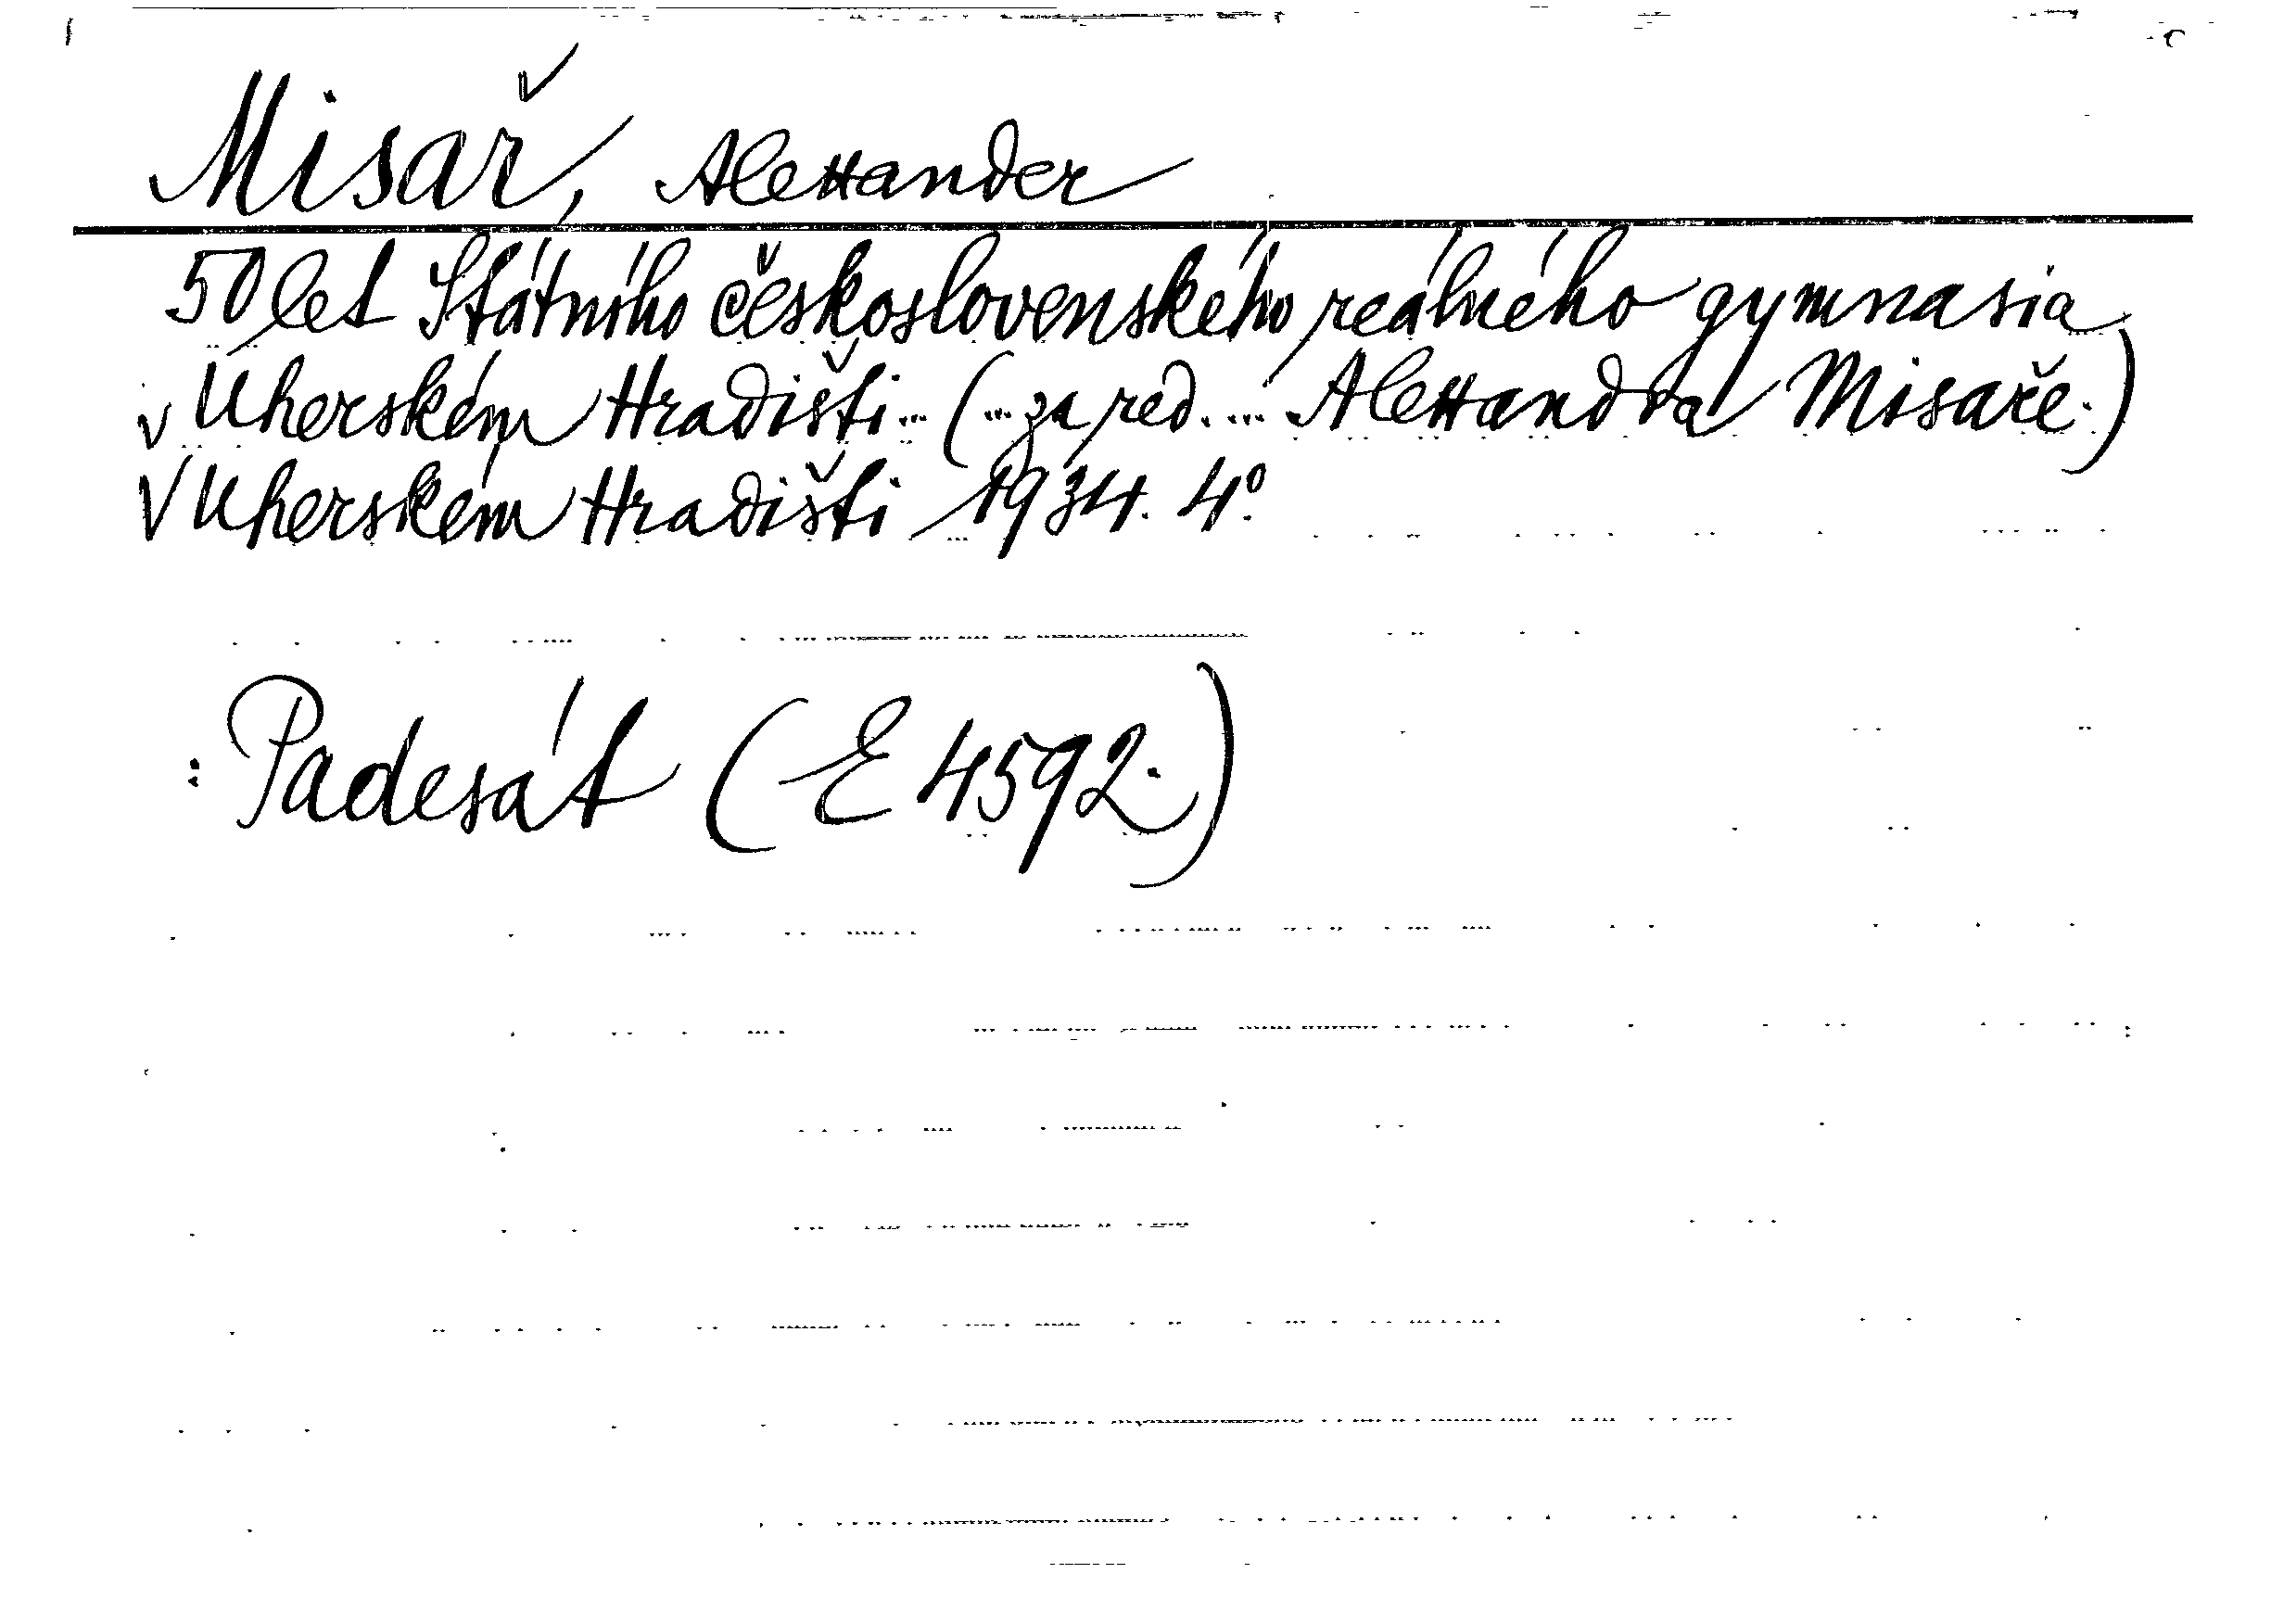 Misař, Alexander
50 let Státního československého reálného gymnasia
v Uherském Hradišti... (...za red. ... Alexandra Misaře.)
V Uherském Hradišti 1934. 4°.
: Padesát (E 4592.)